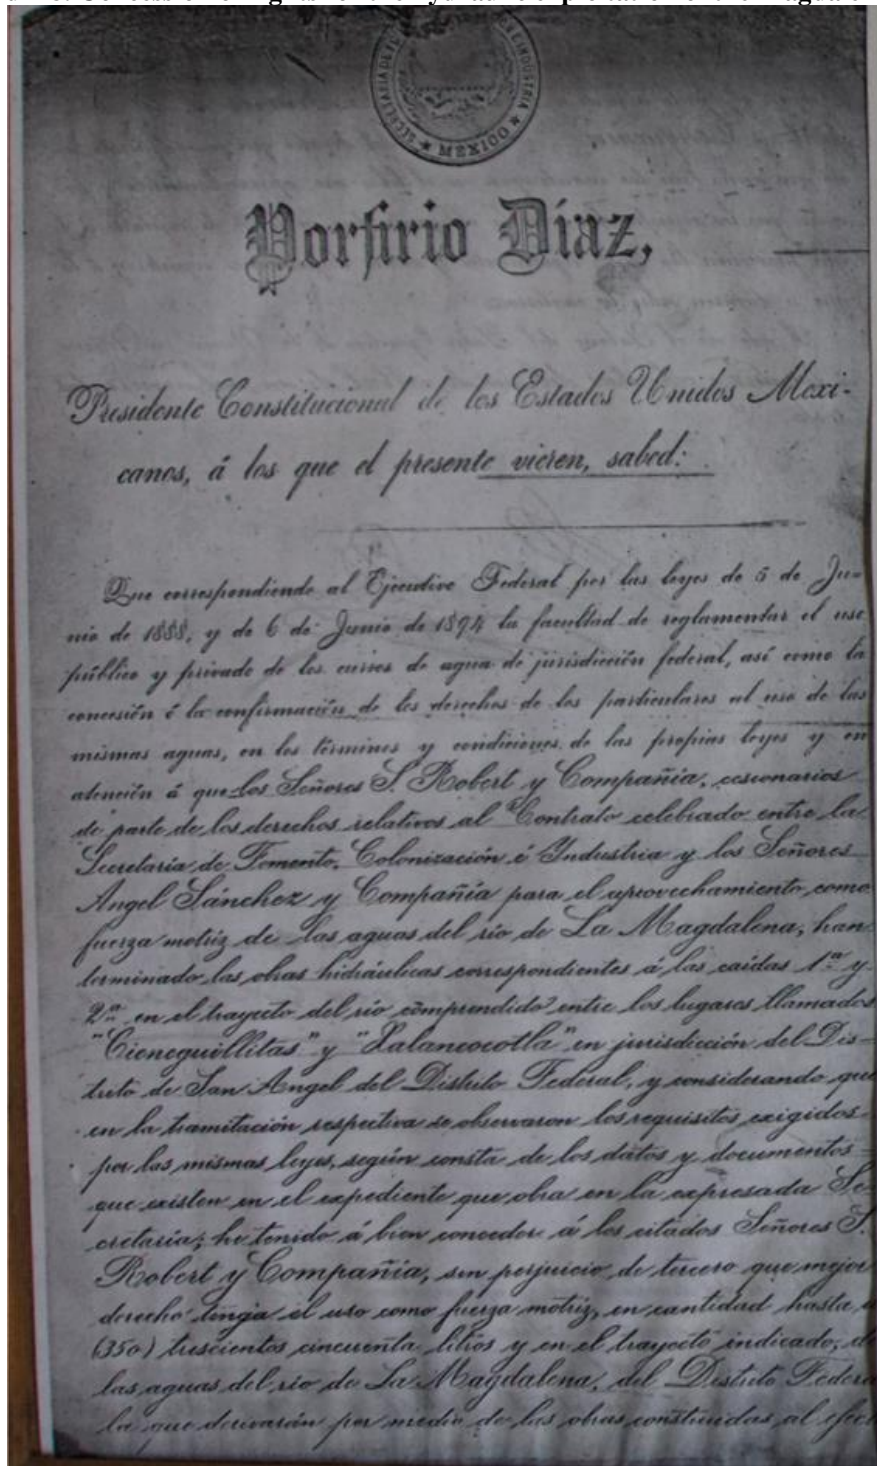 Concession of rights for the hydraulic exploitation of the Magdalena
SECRETARIA DE INDUSTRIA
★ MEXICO ★
Porfirio Díaz,
Presidente Constitucional de los Estados Unidos Mexi-
canos, á los que el presente vieren, sabed:
Que correspondiendo al Ejecutivo Federal por las leyes de 5 de Ju-
nio de 1888, y de 6 de Junio de 1894 la facultad de reglamentar el uso
público y privado de los cursos de agua de jurisdicción federal, así como la
concesión ó la confirmación de los derechos de los particulares al uso de las
mismas aguas, en los términos y condiciones de las propias leyes y en
atención á que los Señores S. Robert y Compañía, cesionarios
de parte de los derechos relativos al Contrato celebrado entre la
Secretaría de Fomento, Colonización é Industria y los Señores
Angel Sánchez y Compañía para el aprovechamiento como
fuerza motriz de las aguas del río de La Magdalena, han
terminado las obras hidráulicas correspondientes á las caídas 1ª y
2ª en el trayecto del río comprendido entre los lugares llamados
"Cieneguillitas" y "Xalancocotla" en jurisdicción del Dis-
trito de San Angel del Distrito Federal, y considerando que
en la tramitación respectiva se observaron los requisitos exigidos
por las mismas leyes, según consta de los datos y documentos
que existen en el expediente que obra en la expresada Se-
cretaría; he tenido á bien conceder á los citados Señores S.
Robert y Compañía, sin perjuicio de tercero que mejor
derecho tenga el uso como fuerza motriz, en cantidad hasta
(350) trescientos cincuenta litros y en el trayecto indicado, de
las aguas del río de La Magdalena, del Distrito Federal
la que derivarán por medio de las obras construidas al efec